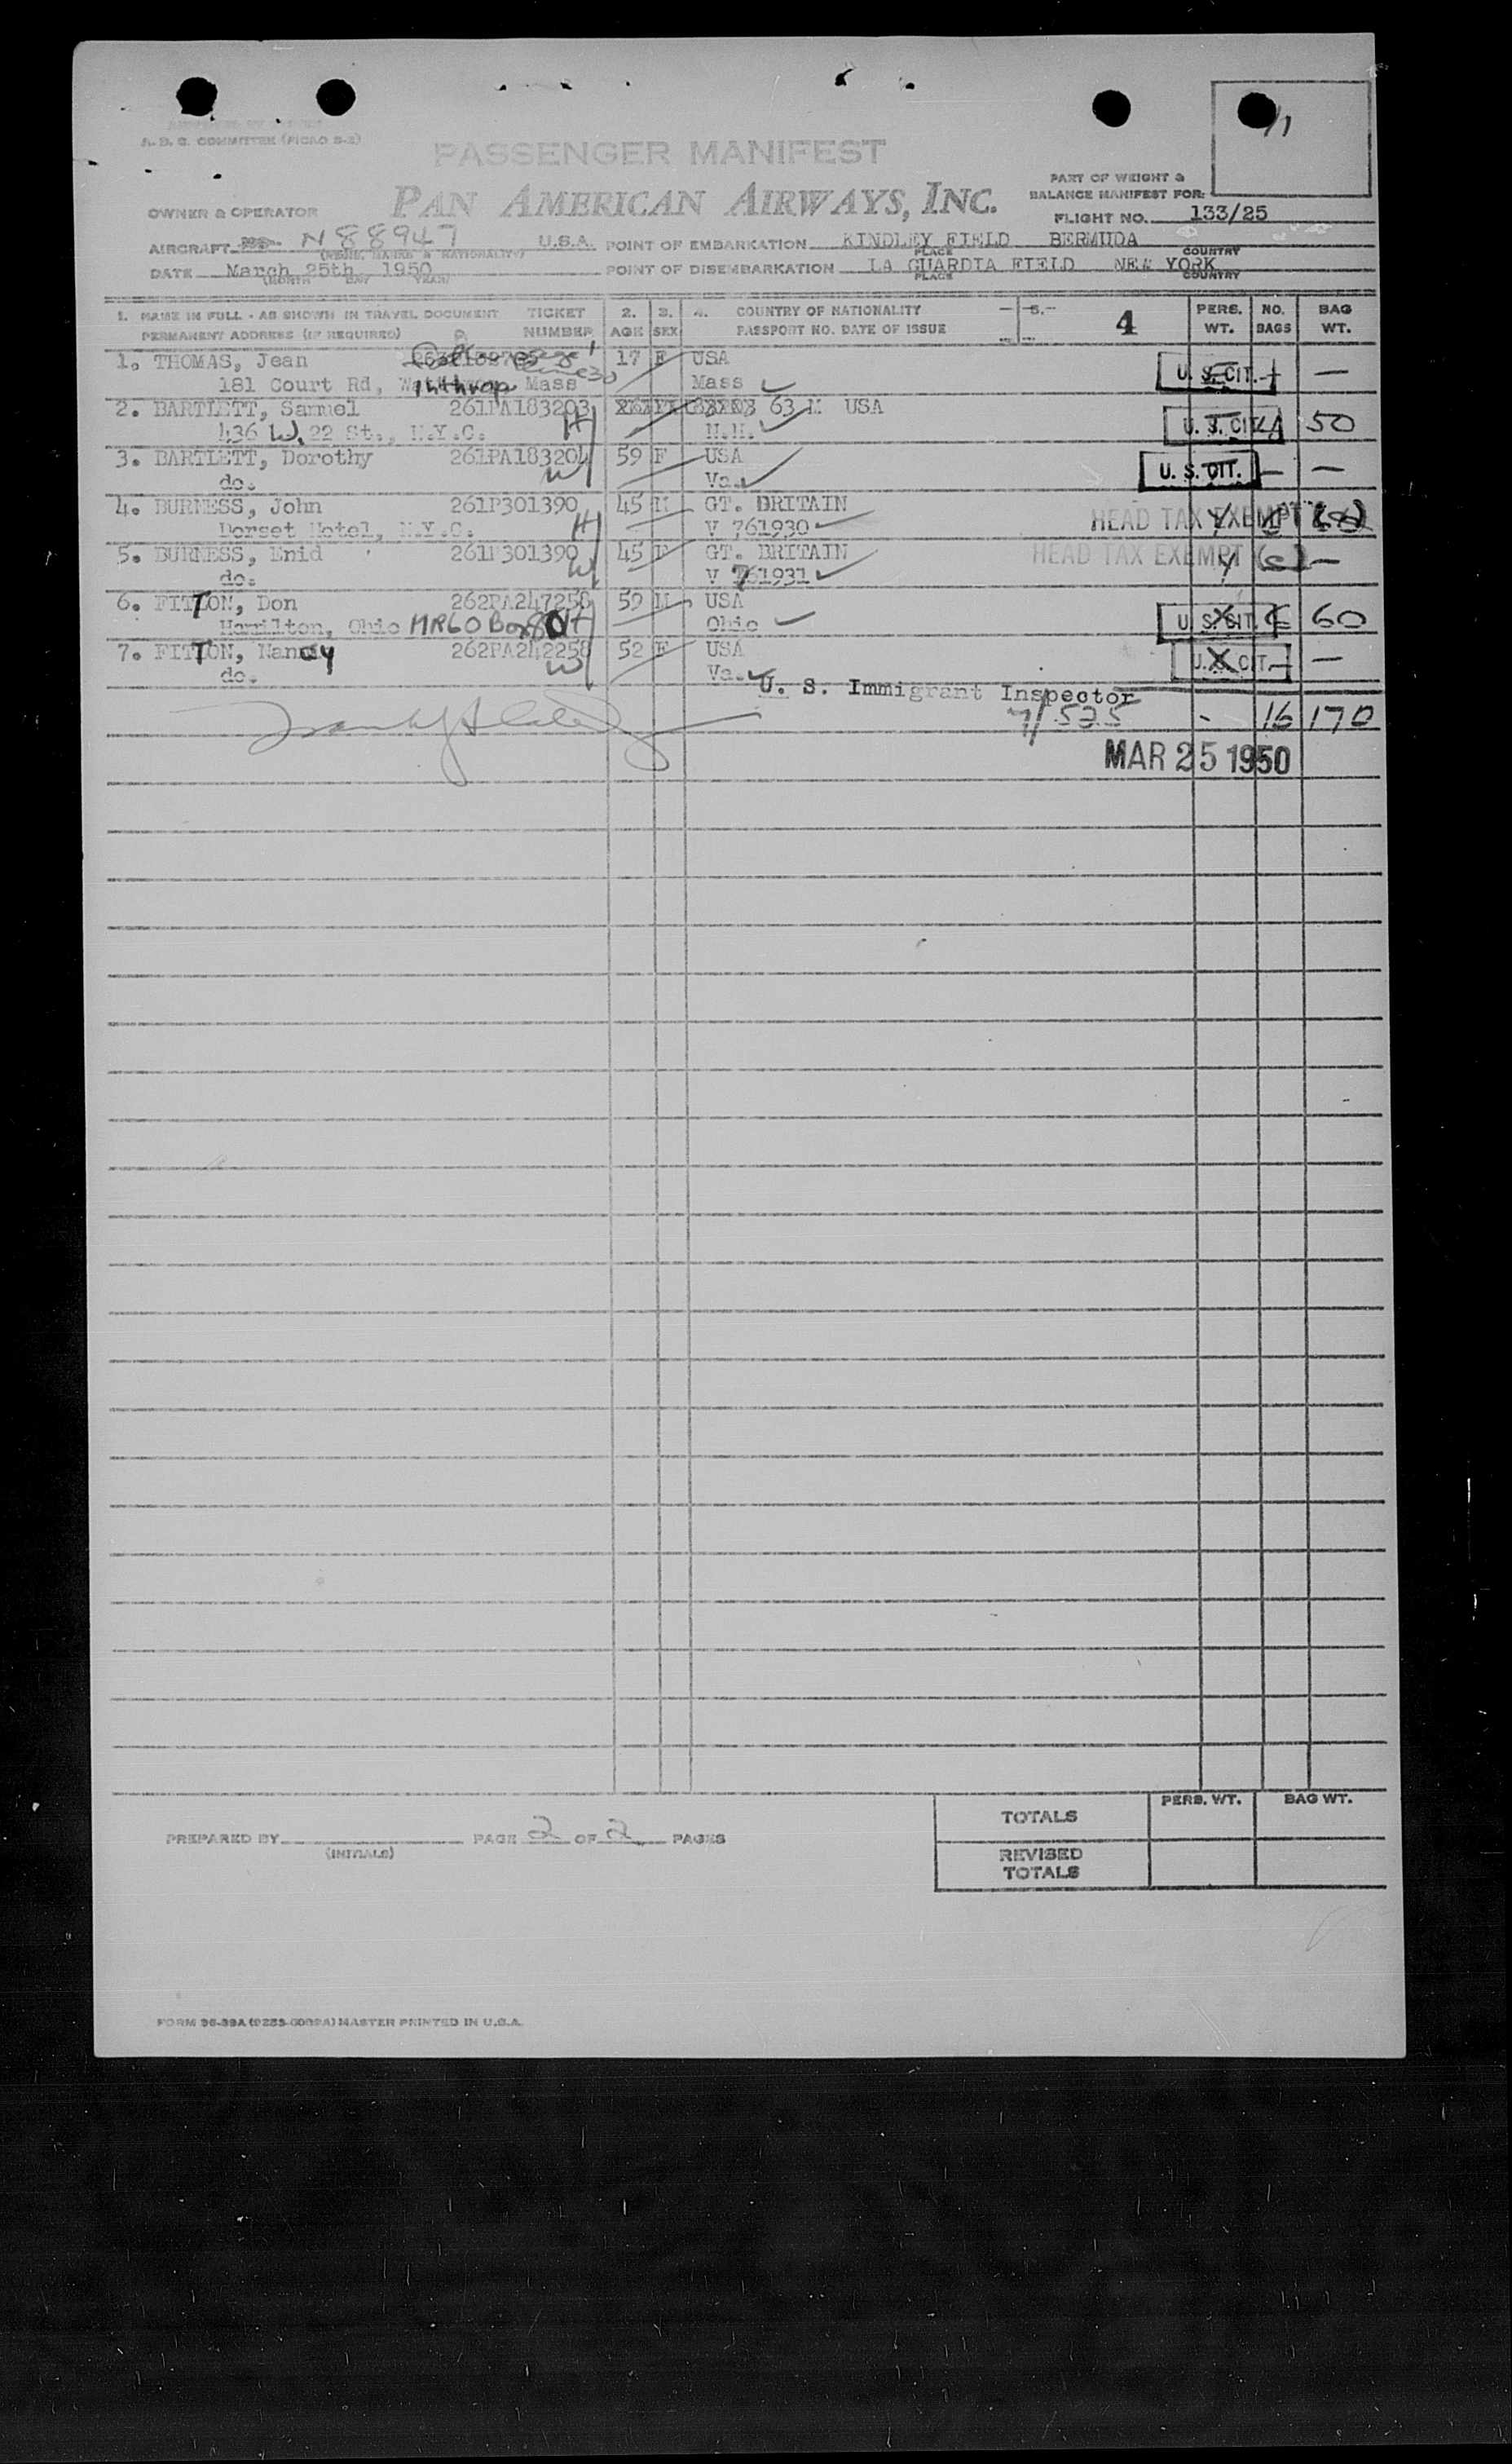 A.B.C. COMMITTEE (PICAO S-2)
PASSENGER MANIFEST
PAN AMERICAN AIRWAYS, INC.
PART OF WEIGHT &
BALANCE MANIFEST FOR:
OWNER & OPERATOR
FLIGHT NO. 133/25
AIRCRAFT N88947 U.S.A. POINT OF EMBARKATION KINDLEY FIELD BERMUDA
(NAME, MARKS & NATIONALITY) PLACE COUNTRY
DATE March 25th 1950 POINT OF DISEMBARKATION LA GUARDIA FIELD NEW YORK
(MONTH DAY YEAR) PLACE COUNTRY
1. NAME IN FULL - AS SHOWN IN TRAVEL DOCUMENT TICKET 2. 3. 4. COUNTRY OF NATIONALITY 5. 4 PERS. NO. BAG
PERMANENT ADDRESS (IF REQUIRED) NUMBER AGE SEX PASSPORT NO. DATE OF ISSUE WT. BAGS WT.
1. THOMAS, Jean 17 F USA
181 Court Rd, Winthrop Mass Mass U. S. CIT. —
2. BARTLETT, Samuel 261PA183203 63 M USA
436 W. 22 St., N.Y.C. H N.H. U. S. CIT. 4 50
3. BARTLETT, Dorothy 261PA183204 59 F USA
do. W Va. U. S. CIT. — —
4. BURNESS, John 261P301390 45 M GT. BRITAIN
Dorset Hotel, N.Y.C. H V 761930 HEAD TAX EXEMPT
5. BURNESS, Enid 261P301390 45 F GT. BRITAIN
do. W V 761931 HEAD TAX EXEMPT (c) —
6. FITTON, Don 262PA247258 59 M USA
Hamilton, Ohio MR60 Box 80 H Ohio U. S. CIT. 6 60
7. FITTON, Nancy 262PA242258 52 F USA
do. W Va. U. S. CIT. — —
U. S. Immigrant Inspector
7/525 - 16 170
MAR 25 1950
TOTALS PERS. WT. BAG WT.
PREPARED BY PAGE 2 OF 2 PAGES
(INITIALS)
REVISED
TOTALS
FORM 96-39A (9253-6089A) MASTER PRINTED IN U.S.A.